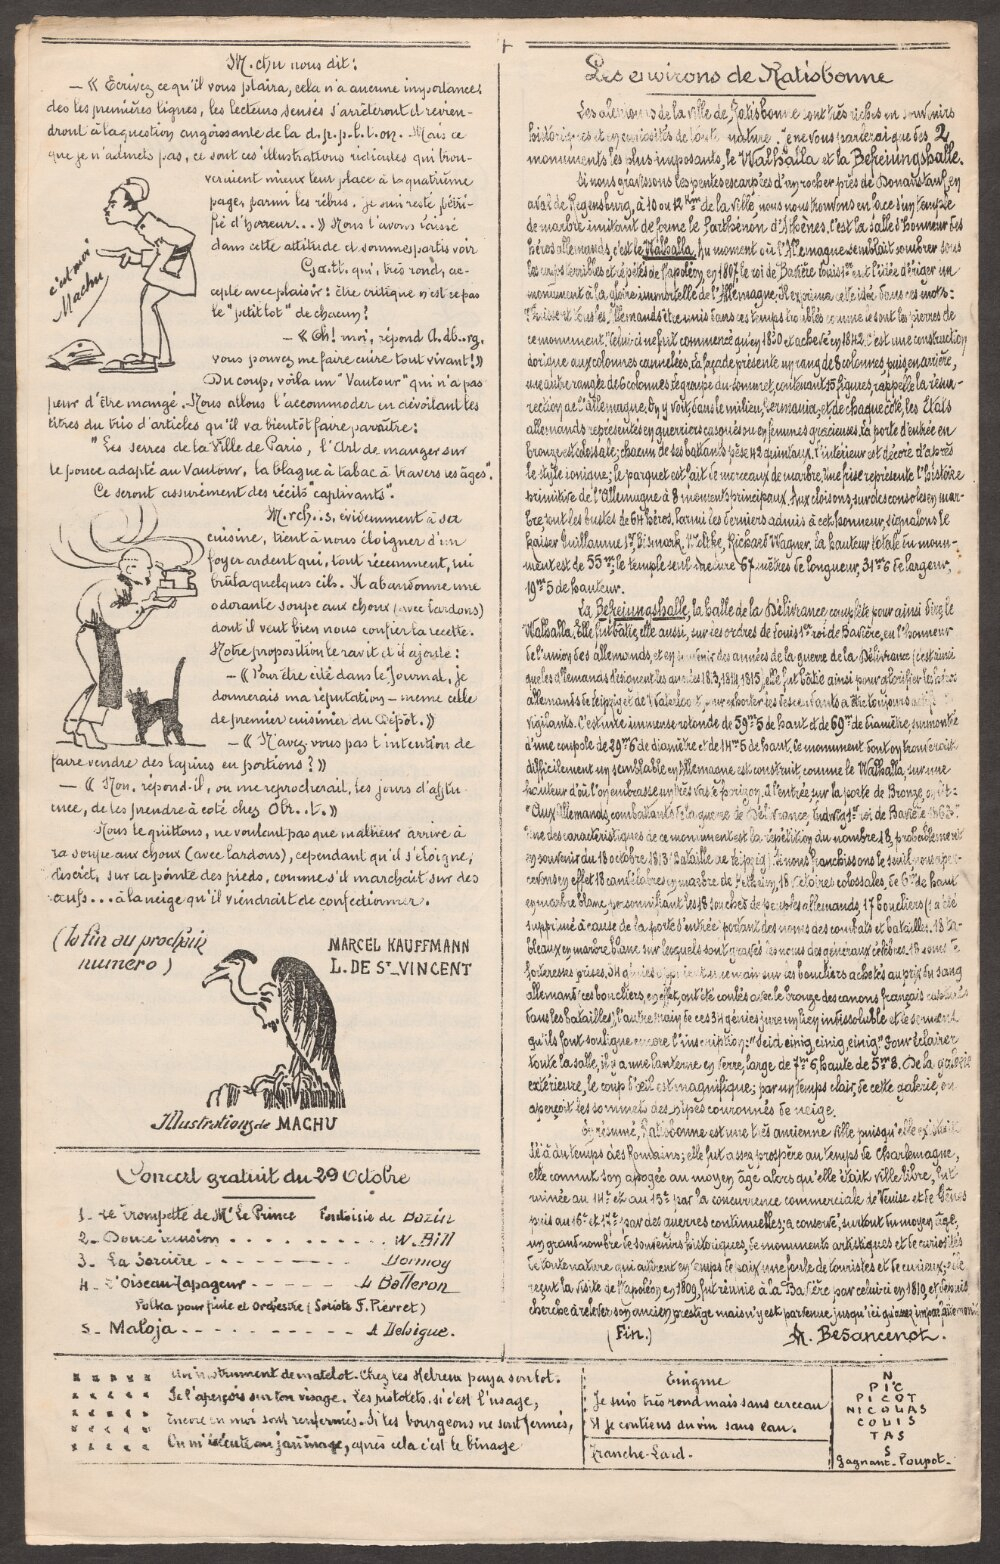 M.chu nous dit:
— « Ecrivez ce qu'il vous plaira, cela n'a aucune importance,
dès les premières lignes, les lecteurs sensés s'arrêteront et revien-
dront à la question angoissante de la d.p.p.l.t.on. Mais ce
que je n'admets pas, ce sont ces illustrations ridicules qui trou-
veraient mieux leur place à la quatrième
page, parmi les rébus. Je suis resté pétri-
fié d'horreur... » Nous l'avons laissé
dans cette attitude et sommes partis voir
G.a.tt. qui, très rond, ac-
cepte avec plaisir: être critiqué n'est ce pas
le "petit lot" de chacun?
— « Oh! moi, répond A.db..rg.
vous pouvez me faire cuire tout vivant! »
Du coup, voilà un "Vautour" qui n'a pas
peur d'être mangé. Nous allons l'accommoder en dévoilant les
titres du trio d'articles qu'il va bientôt faire paraître:
"Les serres de la Ville de Paris, l'Art de manger sur
le pouce adapté au Vautour, la blague à tabac à travers les âges".
Ce seront assurément des récits "captivants".
c'est moi
Machu
M.rch..s, évidemment à sa
cuisine, tient à nous éloigner d'un
foyer ardent qui, tout récemment, lui
brûla quelques cils. Il abandonne une
odorante soupe aux choux (avec lardons)
dont il veut bien nous confier la recette.
Notre proposition le ravit et il ajoute:
— « Pour être cité dans le Journal, je
donnerais ma réputation — même celle
de premier cuisinier du Dépôt. »
— « N'avez vous pas l'intention de
faire vendre des lapins en portions? »
— « Non, répond-il, on me reprocherait, les jours d'afflu-
ence, de les prendre à coté chez Obr..t. »
Nous le quittons, ne voulant pas que malheur arrive à
sa soupe aux choux (avec lardons), cependant qu'il s'éloigne,
discret, sur la pointe des pieds, comme s'il marchait sur des
œufs... à la neige qu'il viendrait de confectionner.
(la fin au prochain
numéro)
MARCEL KAUFFMANN
L. DE St_VINCENT
Illustrations de MACHU
Concert gratuit du 29 Octobre
1_ Le trompette de Mr Le Prince Fantaisie de Bazin
2_ Douce illusion . . . . . . . . . W. Bill
3_ La Sorcière . - - - - - - - Dormoy
4_ L'Oiseau Tapageur - - - - - L Balleron
Polka pour flûte et Orchestre (Soliste F. Pierret)
5_ Maloja. - - - - - - - - - A Delsigue.
Les environs de Ratisbonne
Les alentours de la ville de Ratisbonne sont très riches en souvenirs
historiques et en curiosités de toute nature; je ne vous parlerai que des 2
monuments les plus imposants, le Walhalla et la Befreiungshalle.
Si nous gravissons les pentes escarpées d'un rocher près de Donaustauf, en
aval de Regensburg, à 10 ou 12 Km de la ville, nous nous trouvons en face d'un temple
de marbre imitant de forme le Parthénon d'Athènes. C'est la salle d'honneur des
héros allemands, c'est le Walhalla. Au moment où l'Allemagne semblait sombrer sous
les coups terribles et répétés de Napoléon, en 1807, le roi de Bavière Louis 1er eut l'idée d'ériger un
monument à la gloire immortelle de l'Allemagne. Il exprima cette idée dans ces mots:
Puissent tous les Allemands être unis dans ces temps troublés comme le sont les pierres de
ce monument. Celui-ci ne fut commencé qu'en 1830 et achevé en 1842. C'est une construction
dorique aux colonnes cannelées. La façade présente un rang de 8 colonnes, puis en arrière,
une autre rangée de 6 colonnes. Le groupe du sommet, contenant 15 figures, rappelle la résur-
rection de l'Allemagne. On y voit, dans le milieu, Germania, et de chaque côté, les Etats
allemands représentés en guerriers casqués ou en femmes gracieuses. La porte d'entrée en
bronze est colossale; chacun de ses battants pèse 42 quintaux. L'intérieur est décoré d'après
le style ionique; le parquet est fait de morceaux de marbre. Une frise représente l'histoire
primitive de l'Allemagne à 8 moments principaux. Aux cloisons, sur des consoles en mar-
bre, sont les bustes de 64 héros. Parmi les derniers admis à cet honneur, signalons le
Kaiser Guillaume 1er, Bismark, Moltke, Richard Wagner. La hauteur totale du monu-
ment est de 55m; le temple seul mesure 67 mètres de longueur, 31m6 de largeur,
19m5 de hauteur.
La Befreiungshalle, la halle de la Délivrance complète pour ainsi dire le
Walhalla. Elle fut bâtie, elle aussi, sur les ordres de Louis 1er roi de Bavière, en l'honneur
de l'union des allemands, et en souvenir des années de la guerre de la Délivrance (c'est ainsi
que les allemands désignent les années 1813, 1814, 1815); elle fut bâtie ainsi pour glorifier les héros
allemands de Leipzig et de Waterloo et pour exhorter les descendants à être toujours actifs et
vigilants. C'est une immense rotonde de 59m5 de haut et de 69m de diamètre, surmontée
d'une coupole de 29m6 de diamètre et de 14m5 de haut. Ce monument dont on trouverait
difficilement un semblable en Allemagne est construit, comme le Walhalla, sur une
hauteur d'où l'on embrasse un très vaste horizon. A l'entrée, sur la porte de Bronze, on lit:
"Aux Allemands, combattants de la guerre de Délivrance, Ludwig 1er roi de Bavière 1863".
Une des caractéristiques de ce monument est la répétition du nombre 18, probablement
en souvenir du 18 octobre 1813 (Bataille de Leipzig). Si nous franchissons le seuil, nous aper-
cevons en effet 18 candélabres en marbre, 18 victoires colossales, de 6m de haut
en marbre blanc, personnifiant les 18 souches de peuples allemands, 17 boucliers (1 a été
supprimé à cause de la porte d'entrée) portant des noms des combats et batailles. 18 ta-
bleaux en marbre blanc sur lesquels sont gravés les noms des généraux célèbres, 18 noms de
forteresses prises. 34 génies appuient une main sur ces boucliers achetés au prix du sang
allemand (ces boucliers, en effet, ont été coulés avec le bronze des canons français capturés
dans les batailles); l'autre main de ces 34 génies jure un lien indissoluble et le serment
qu'ils font souligne encore l'inscription: "Seid einig, einig, einig". Pour éclairer
toute la salle, il y a une lanterne en verre, large de 7m6, haute de 5m8. De la galerie
extérieure, le coup d'œil est magnifique; par un temps clair, de cette galerie, on
aperçoit les sommets des Alpes couronnés de neige.
En résumé, Ratisbonne est une très ancienne ville puisqu'elle existait
déjà du temps des Romains; elle fut assez prospère au temps de Charlemagne,
elle connut son apogée au moyen âge alors qu'elle était ville libre, fut
ruinée au 14e et au 15e par la concurrence commerciale de Venise et de Gênes
puis au 16e et 17e par des guerres continuelles; a conservé, surtout du moyen âge,
un grand nombre de souvenirs historiques, de monuments artistiques et de curiosités
de toute nature qui attirent en temps de paix une foule de touristes et de curieux; elle
reçut la visite de Napoléon en 1809, fut réunie à la Bavière par celui-ci en 1810 et depuis
cherche à relever son ancien prestige mais n'y est parvenue jusqu'ici qu'assez imparfaitement.
(Fin.) A. BESANCENOT.
x x x x x Un instrument de matelot. Chez les Hébreux paya son lot.
x x x x x Je l'aperçois sur ton visage. Les pistolets, si c'est l'usage,
x x x x x Encore en moi sont renfermés. Si tes bourgeons ne sont fermés,
x x x x x On m'exécute au jardinage, après cela c'est le binage
Enigme
Je suis très rond mais sans cerceau
Et je contiens du vin sans eau.
Tranche-Lard.
N
PIC
PICOT
NICOLAS
COLIS
TAS
S
Gagnant_Poupot_